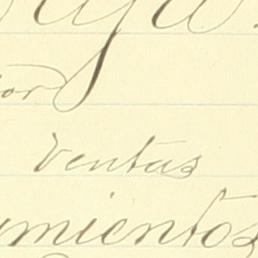 or
ventas
mientos